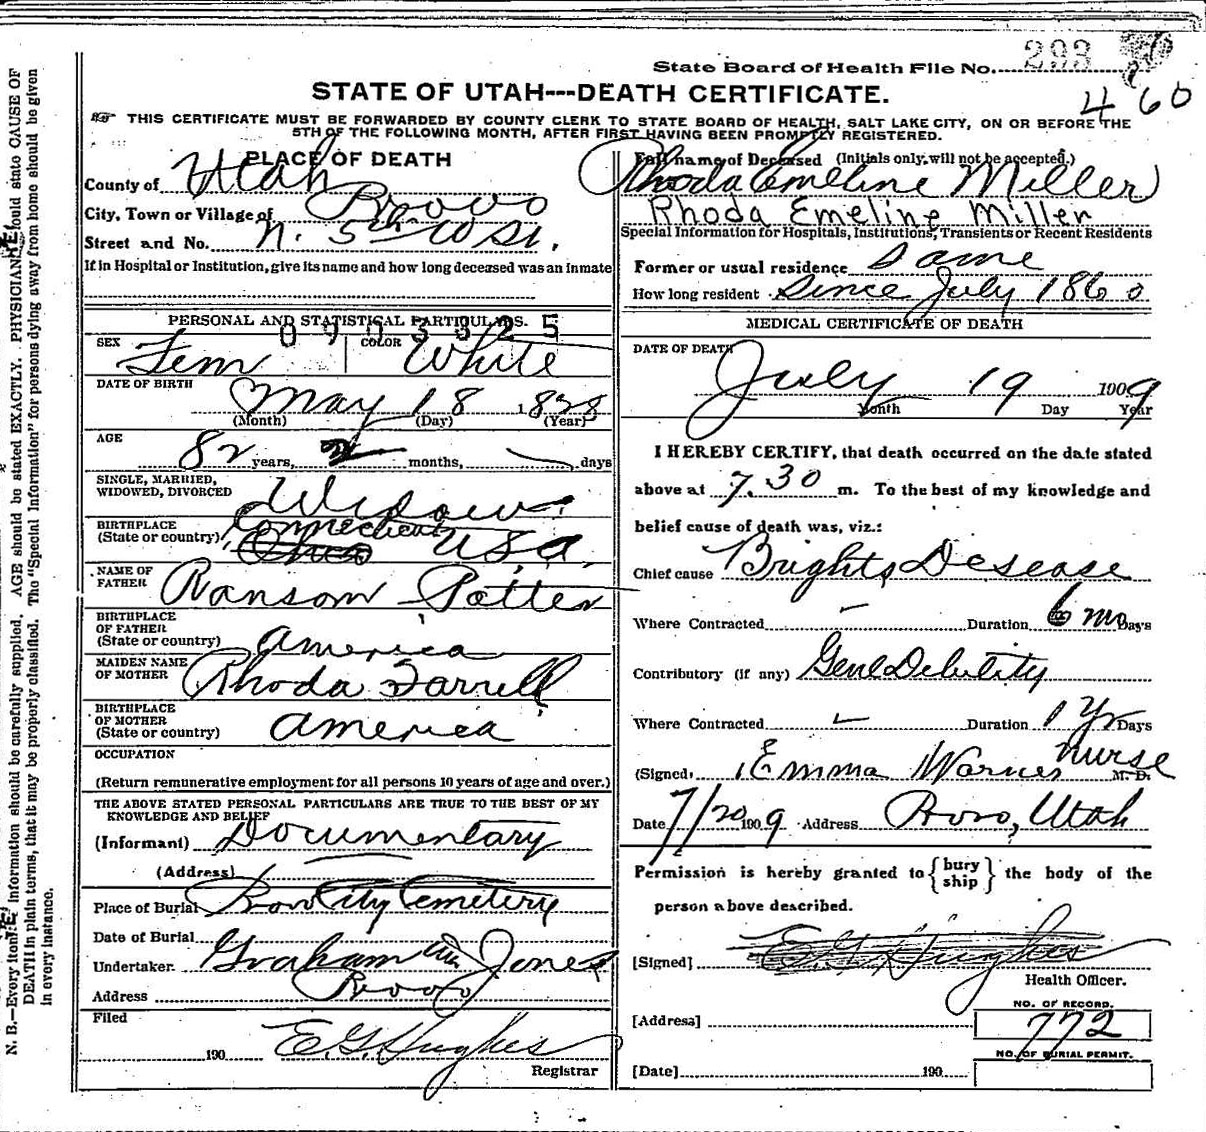 State Board of Health File No. 293
460
STATE OF UTAH---DEATH CERTIFICATE.
THIS CERTIFICATE MUST BE FORWARDED BY COUNTY CLERK TO STATE BOARD OF HEALTH, SALT LAKE CITY, ON OR BEFORE THE
5TH OF THE FOLLOWING MONTH, AFTER FIRST HAVING BEEN PROMPTLY REGISTERED.
PLACE OF DEATH
County of Utah
City, Town or Village of Provo
Street and No. N. 5th W St.
If in Hospital or Institution, give its name and how long deceased was an Inmate
PERSONAL AND STATISTICAL PARTICULARS.
0903325
SEX Fem COLOR White
DATE OF BIRTH May 18 1828
(Month) (Day) (Year)
AGE
82 years, 2 months, days
SINGLE, MARRIED,
WIDOWED, DIVORCED Widow
BIRTHPLACE
(State or country) Connecticut
Ohio USA.
NAME OF
FATHER Ransom Potter
BIRTHPLACE
OF FATHER
(State or country) America
MAIDEN NAME
OF MOTHER Rhoda Farrell
BIRTHPLACE
OF MOTHER
(State or country) America
OCCUPATION
(Return remunerative employment for all persons 10 years of age and over.)
THE ABOVE STATED PERSONAL PARTICULARS ARE TRUE TO THE BEST OF MY
KNOWLEDGE AND BELIEF
(Informant) Documentary
(Address)
Place of Burial Provo City Cemetery
Date of Burial
Undertaker. Graham Jones
Address Provo
Filed
190 E. G. Hughes
Registrar
Full name of Deceased (Initials only, will not be accepted.)
Rhoda Emeline Miller
Rhoda Emeline Miller
Special Information for Hospitals, Institutions, Transients or Recent Residents
Former or usual residence Same
How long resident Since July 1860
MEDICAL CERTIFICATE OF DEATH
DATE OF DEATH
July 19 1909
Month Day Year
I HEREBY CERTIFY, that death occurred on the date stated
above at 7.30 m. To the best of my knowledge and
belief cause of death was, viz.:
Chief cause Brights Desease
Where Contracted Duration 6 mo Days
Contributory (if any) Genl Debility
Where Contracted Duration 1 Yr Days
(Signed) Emma Warner nurse M. D.
Date 7/20 1909 Address Provo, Utah
Permission is hereby granted to {bury ship} the body of the
person above described.
[Signed] E. G. Hughes
Health Officer.
[Address]
NO. OF RECORD.
772
NO. OF BURIAL PERMIT.
[Date] 190
N. B.—Every item of information should be carefully supplied. AGE should be stated EXACTLY. PHYSICIANS should state CAUSE OF
DEATH in plain terms, that it may be properly classified. The "Special Information" for persons dying away from home should be given
in every instance.